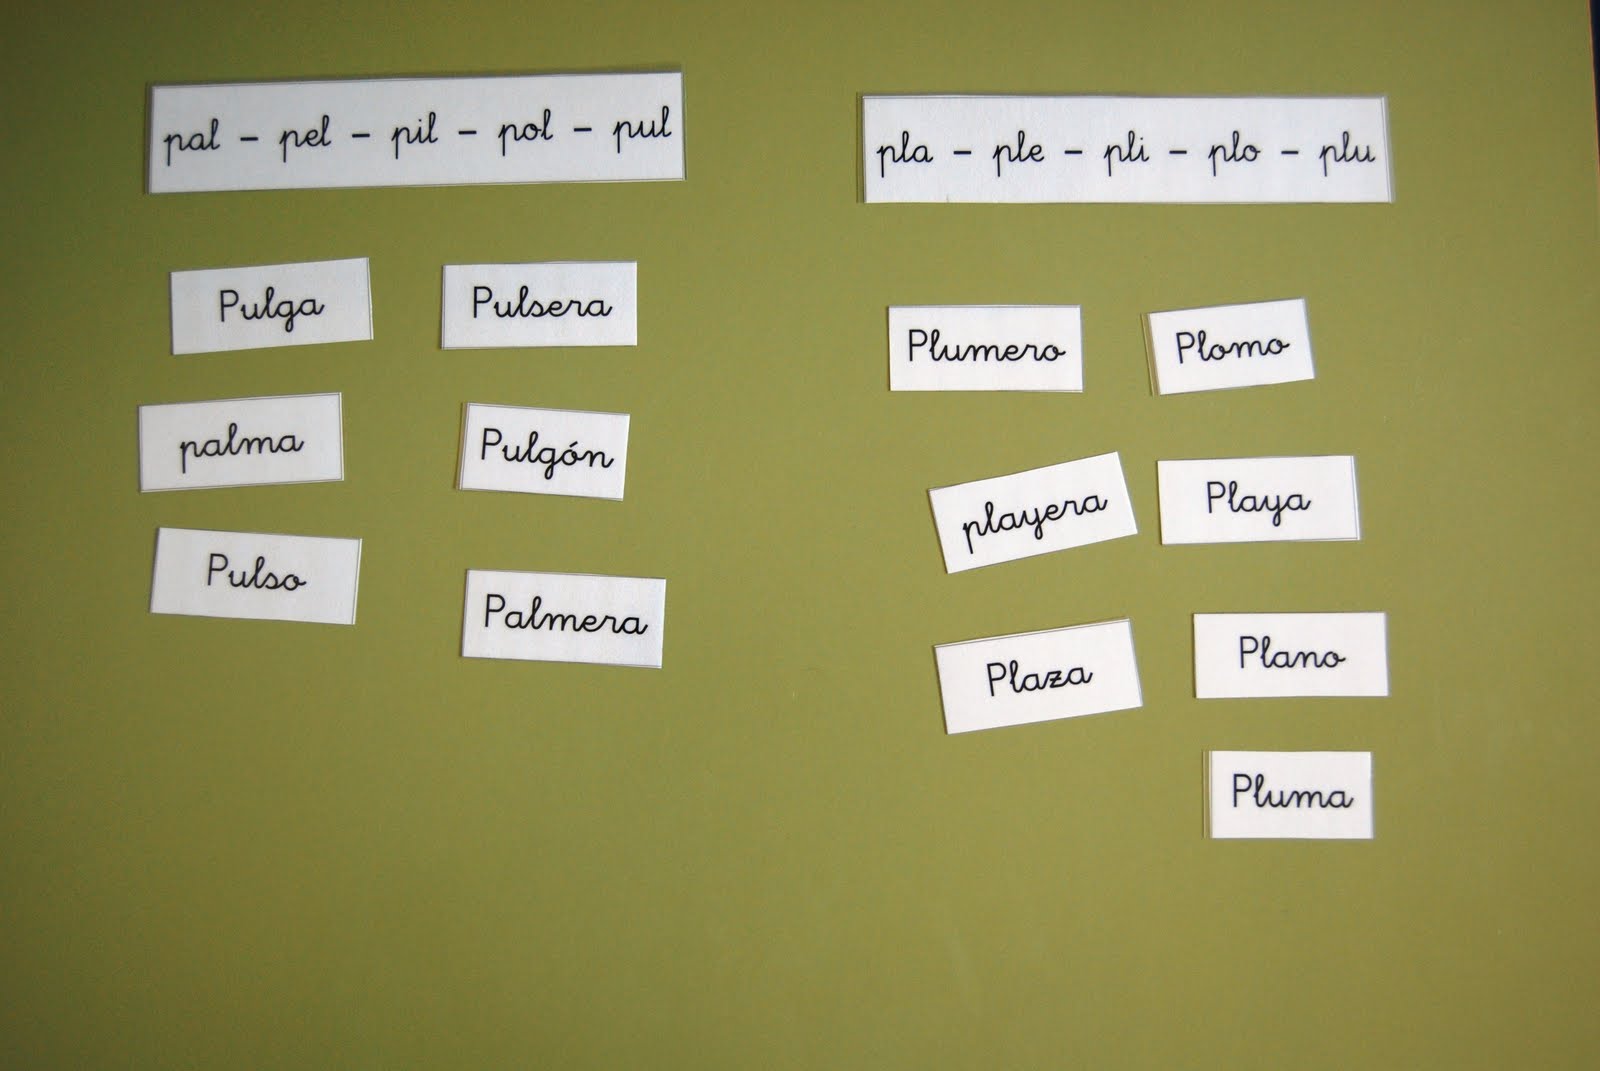 pal - pel - pil - pol - pul
Pulga
Pulsera
palma
Pulgón
Pulso
Palmera
pla - ple - pli - plo - plu
Plumero
Plomo
playera
Playa
Plaza
Plano
Pluma